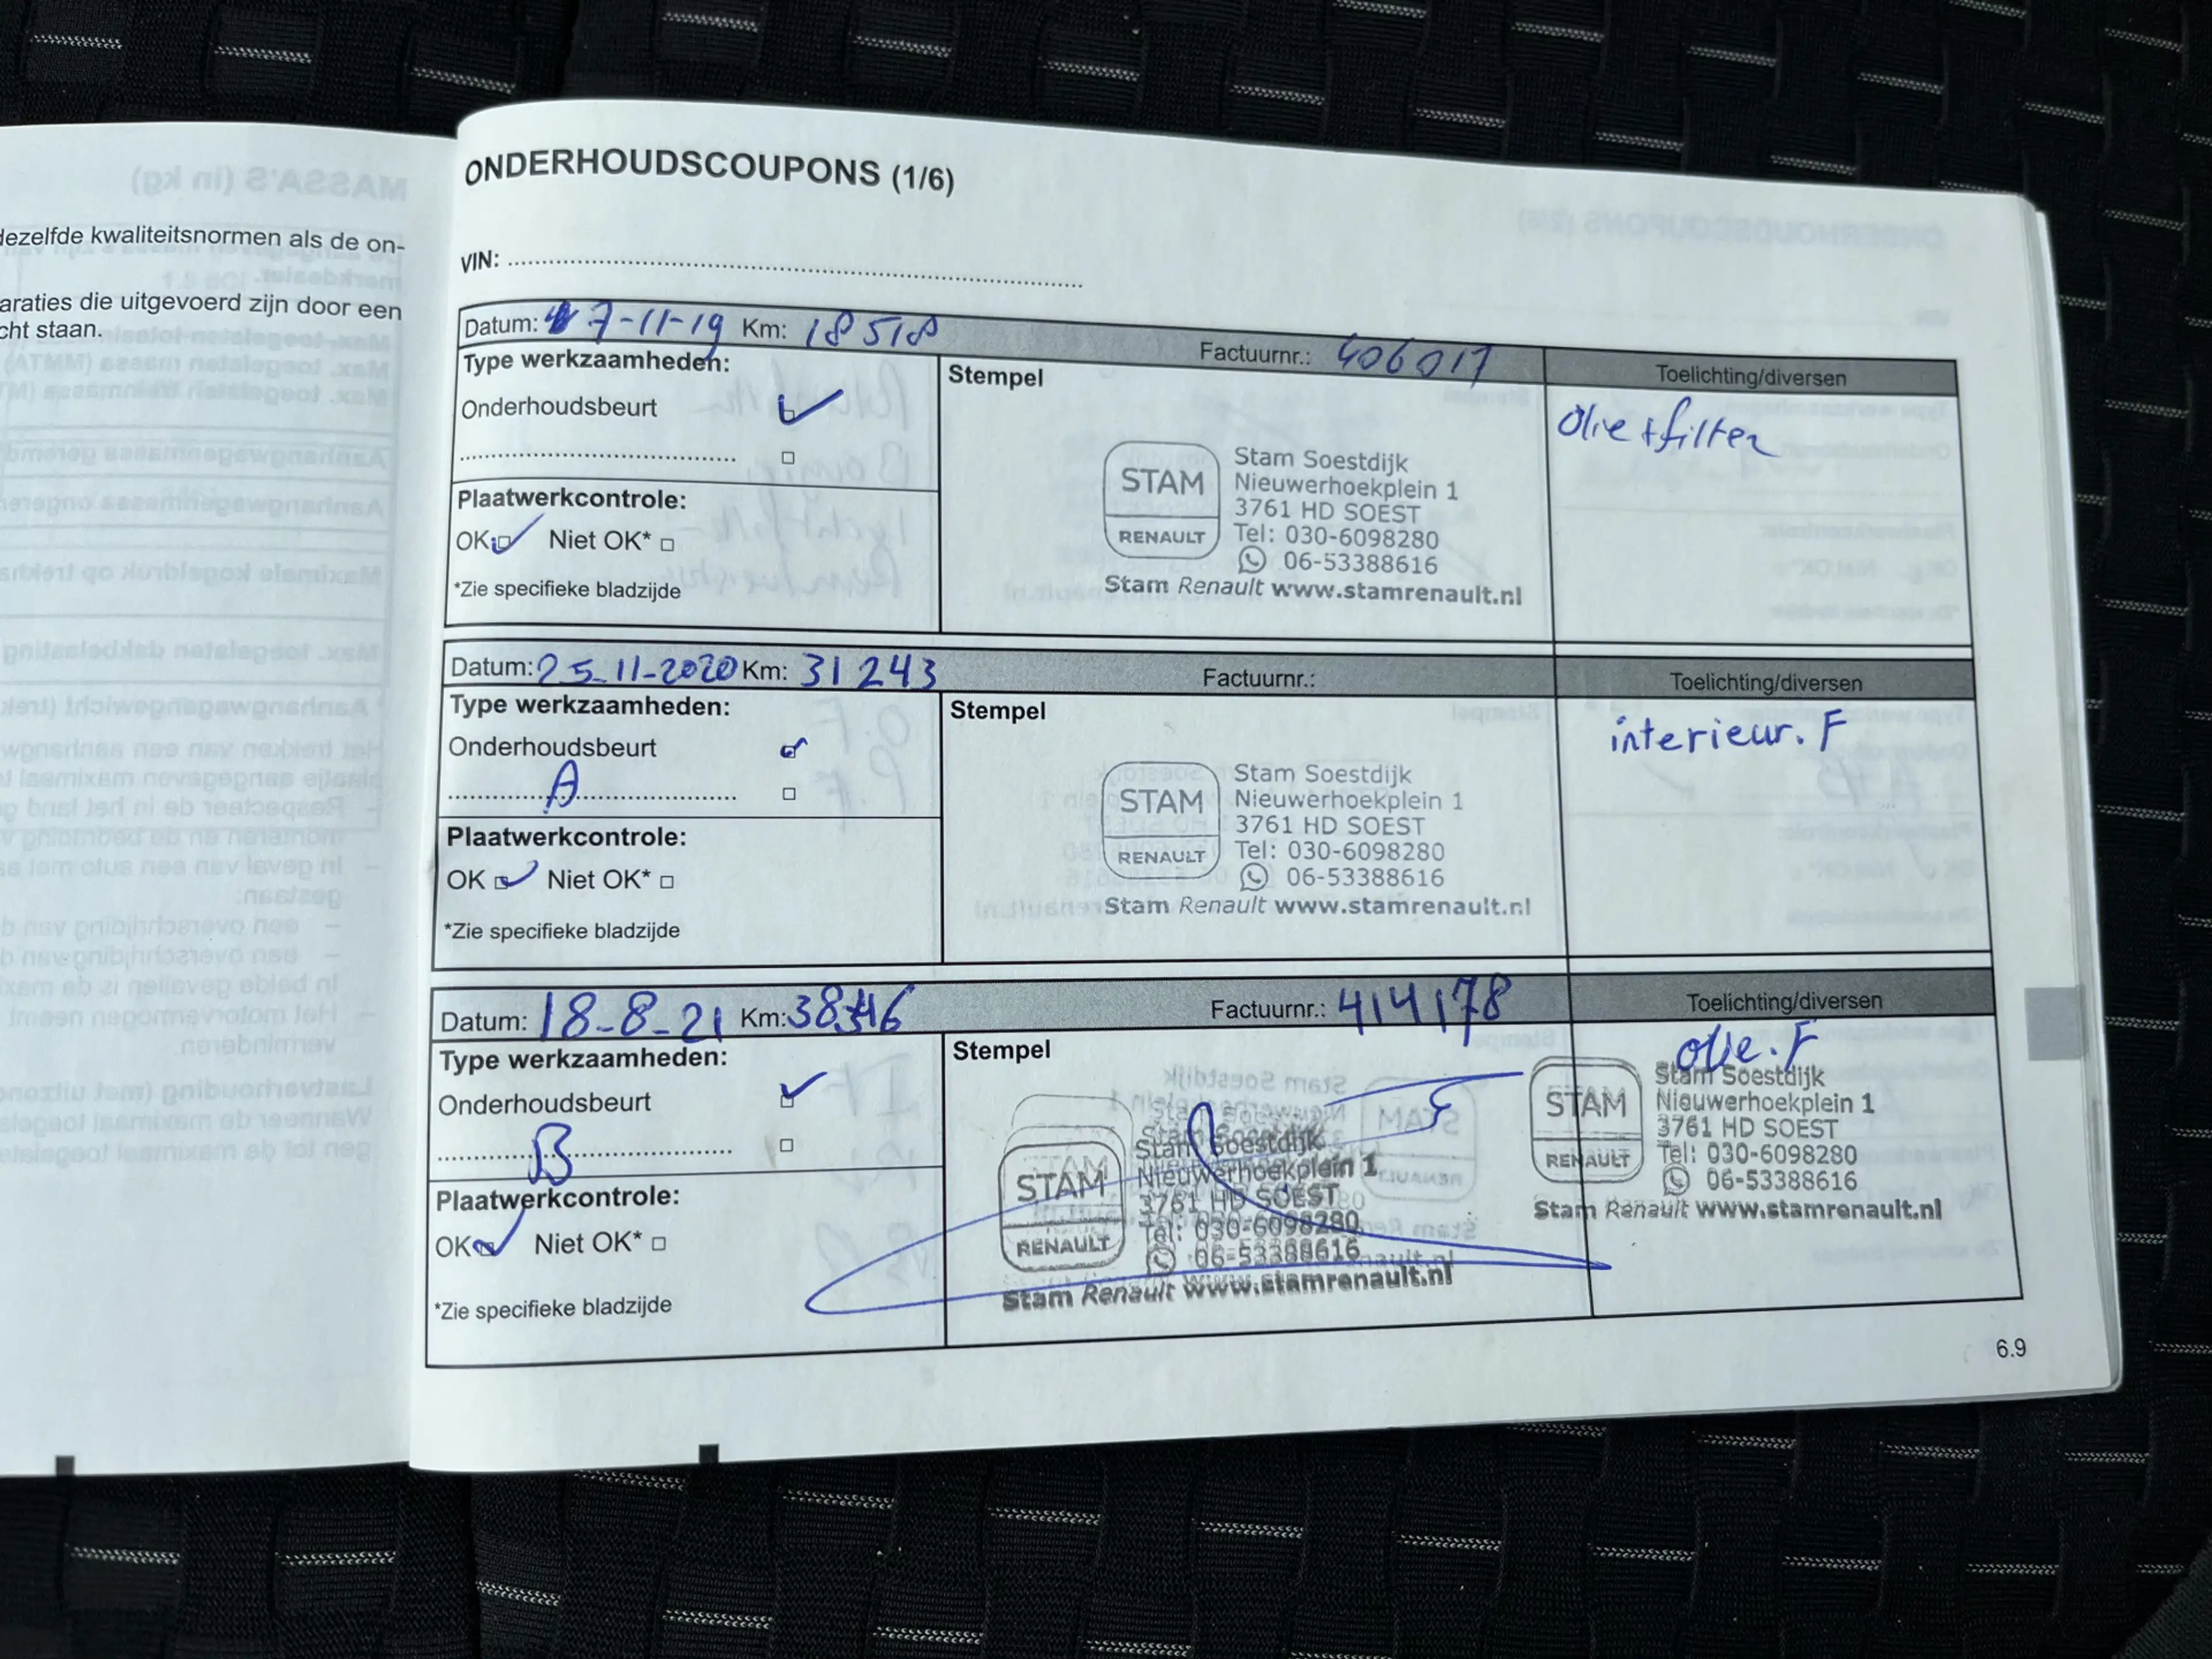 dezelfde kwaliteitsnormen als de on-
araties die uitgevoerd zijn door een
cht staan.
ONDERHOUDSCOUPONS (1/6)
VIN:
Datum: 7-11-19 Km: 18518 Factuurnr.: 406017 Toelichting/diversen
Type werkzaamheden: Stempel
Onderhoudsbeurt
Olie + filter
Plaatwerkcontrole:
OK Niet OK*
*Zie specifieke bladzijde
STAM RENAULT
Stam Soestdijk
Nieuwerhoekplein 1
3761 HD SOEST
Tel: 030-6098280
06-53388616
Stam Renault www.stamrenault.nl
Datum: 25-11-2020 Km: 31243 Factuurnr.: Toelichting/diversen
Type werkzaamheden: Stempel
Onderhoudsbeurt
A
interieur. F
Plaatwerkcontrole:
OK Niet OK*
*Zie specifieke bladzijde
STAM RENAULT
Stam Soestdijk
Nieuwerhoekplein 1
3761 HD SOEST
Tel: 030-6098280
06-53388616
Stam Renault www.stamrenault.nl
Datum: 18-8-21 Km: Factuurnr.: 414178 Toelichting/diversen
Type werkzaamheden: Stempel
Onderhoudsbeurt
B
olie. F
Plaatwerkcontrole:
OK Niet OK*
*Zie specifieke bladzijde
STAM RENAULT
Stam Soestdijk
Nieuwerhoekplein 1
3761 HD SOEST
Tel: 030-6098280
06-53388616
Stam Renault www.stamrenault.nl
STAM RENAULT
Stam Soestdijk
Nieuwerhoekplein 1
3761 HD SOEST
Tel: 030-6098280
06-53388616
Stam Renault www.stamrenault.nl
6.9